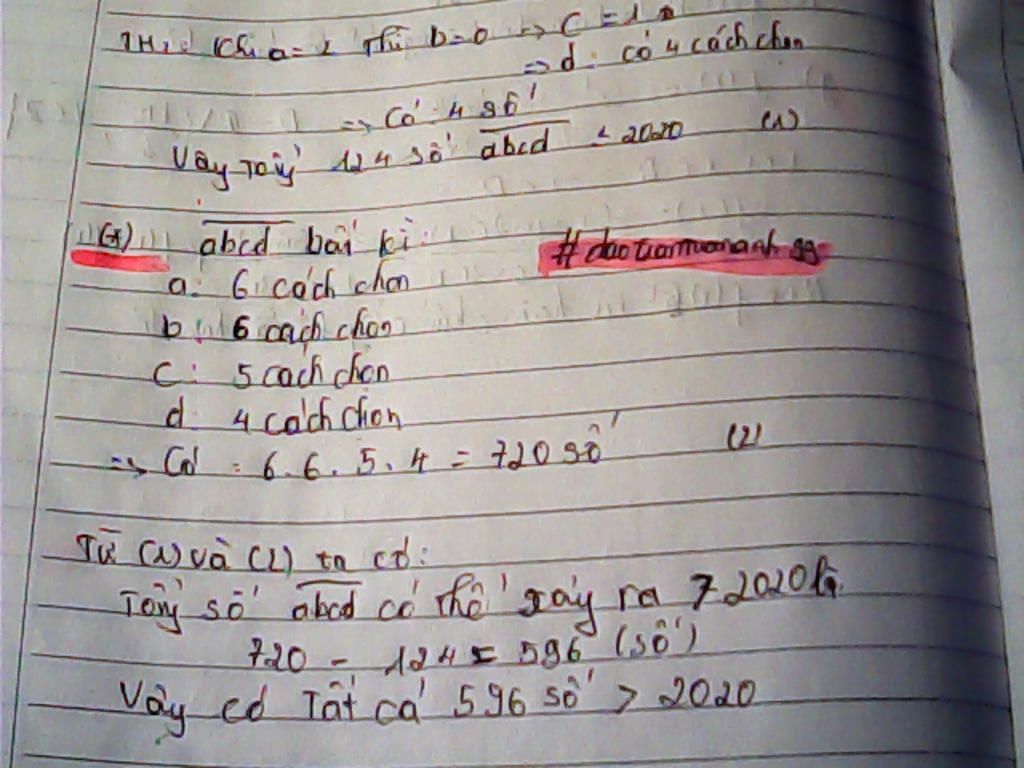 TH2: Khi a=2 thì b=0 => c=1
=> d: có 4 cách chọn
=> Có: 4 số
Vậy tổng 124 số abcd ≤ 2020 (1)
(*) abcd bất kì:
#daotranmuonanh gg
a: 6 cách chọn
b: 6 cách chọn
c: 5 cách chọn
d: 4 cách chọn
=> Có: 6.6.5.4 = 720 số (2)
Từ (1) và (2) ta có:
Tổng số abcd có thể xảy ra > 2020 là:
720 - 124 = 596 (số)
Vậy có tất cả 596 số > 2020